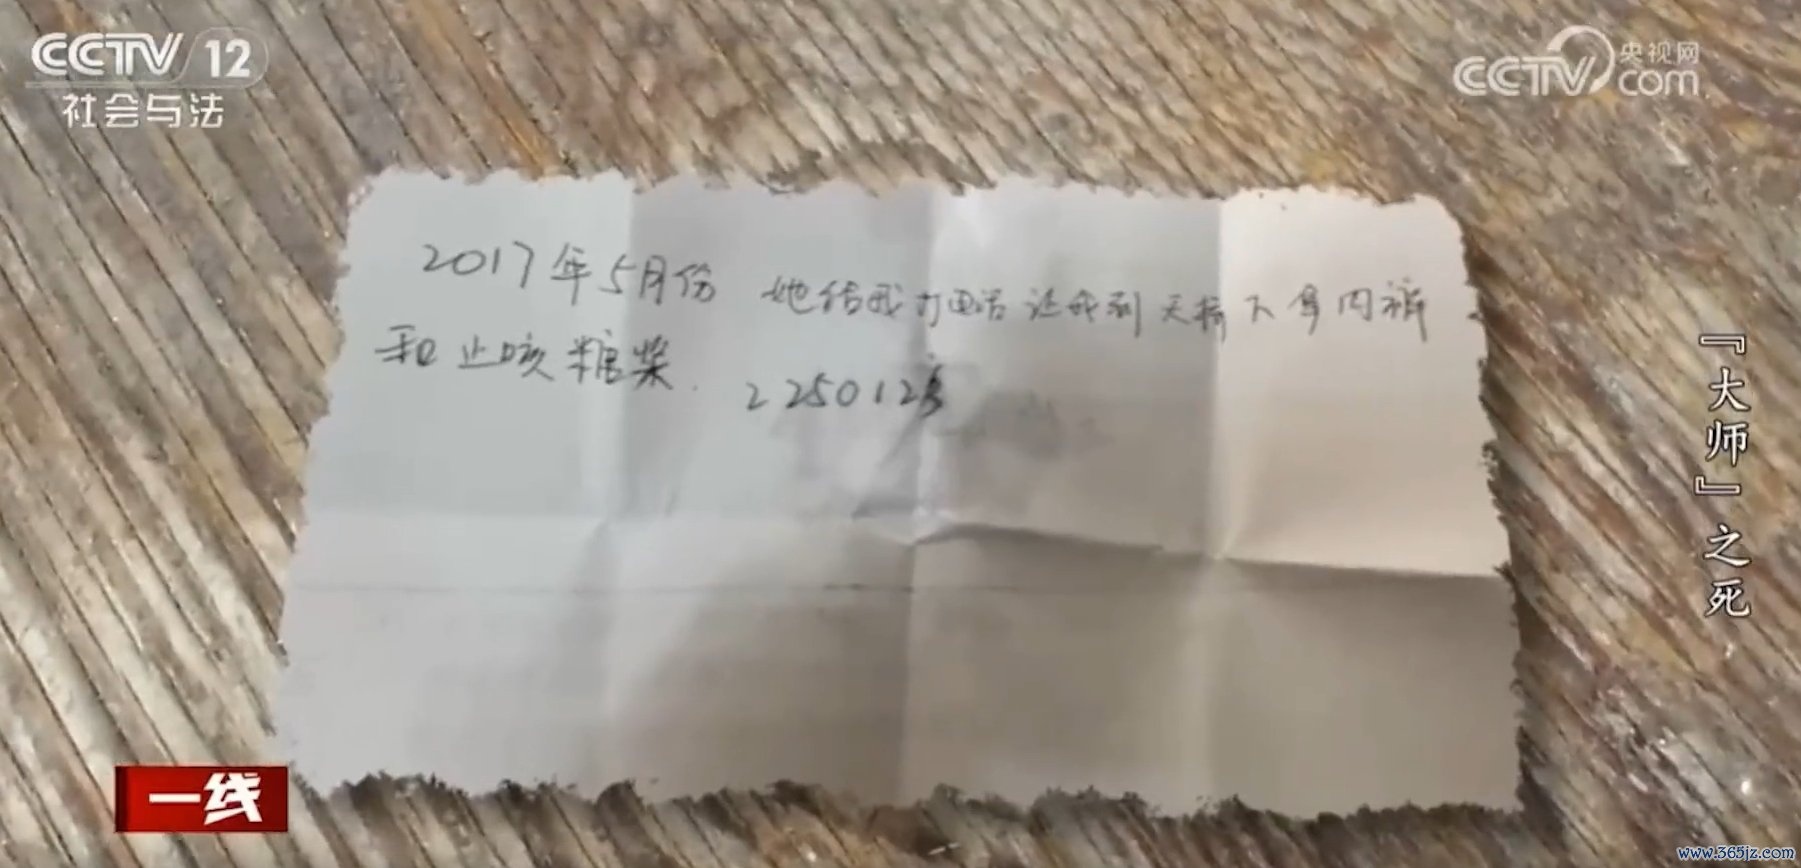 CCTV 12
社会与法
央视网
CCTV com
2017年5月份 她给我打电话让我到天桥下拿内裤
和止咳糖浆. 225012
『大师』之死
一线
www.365jz.com